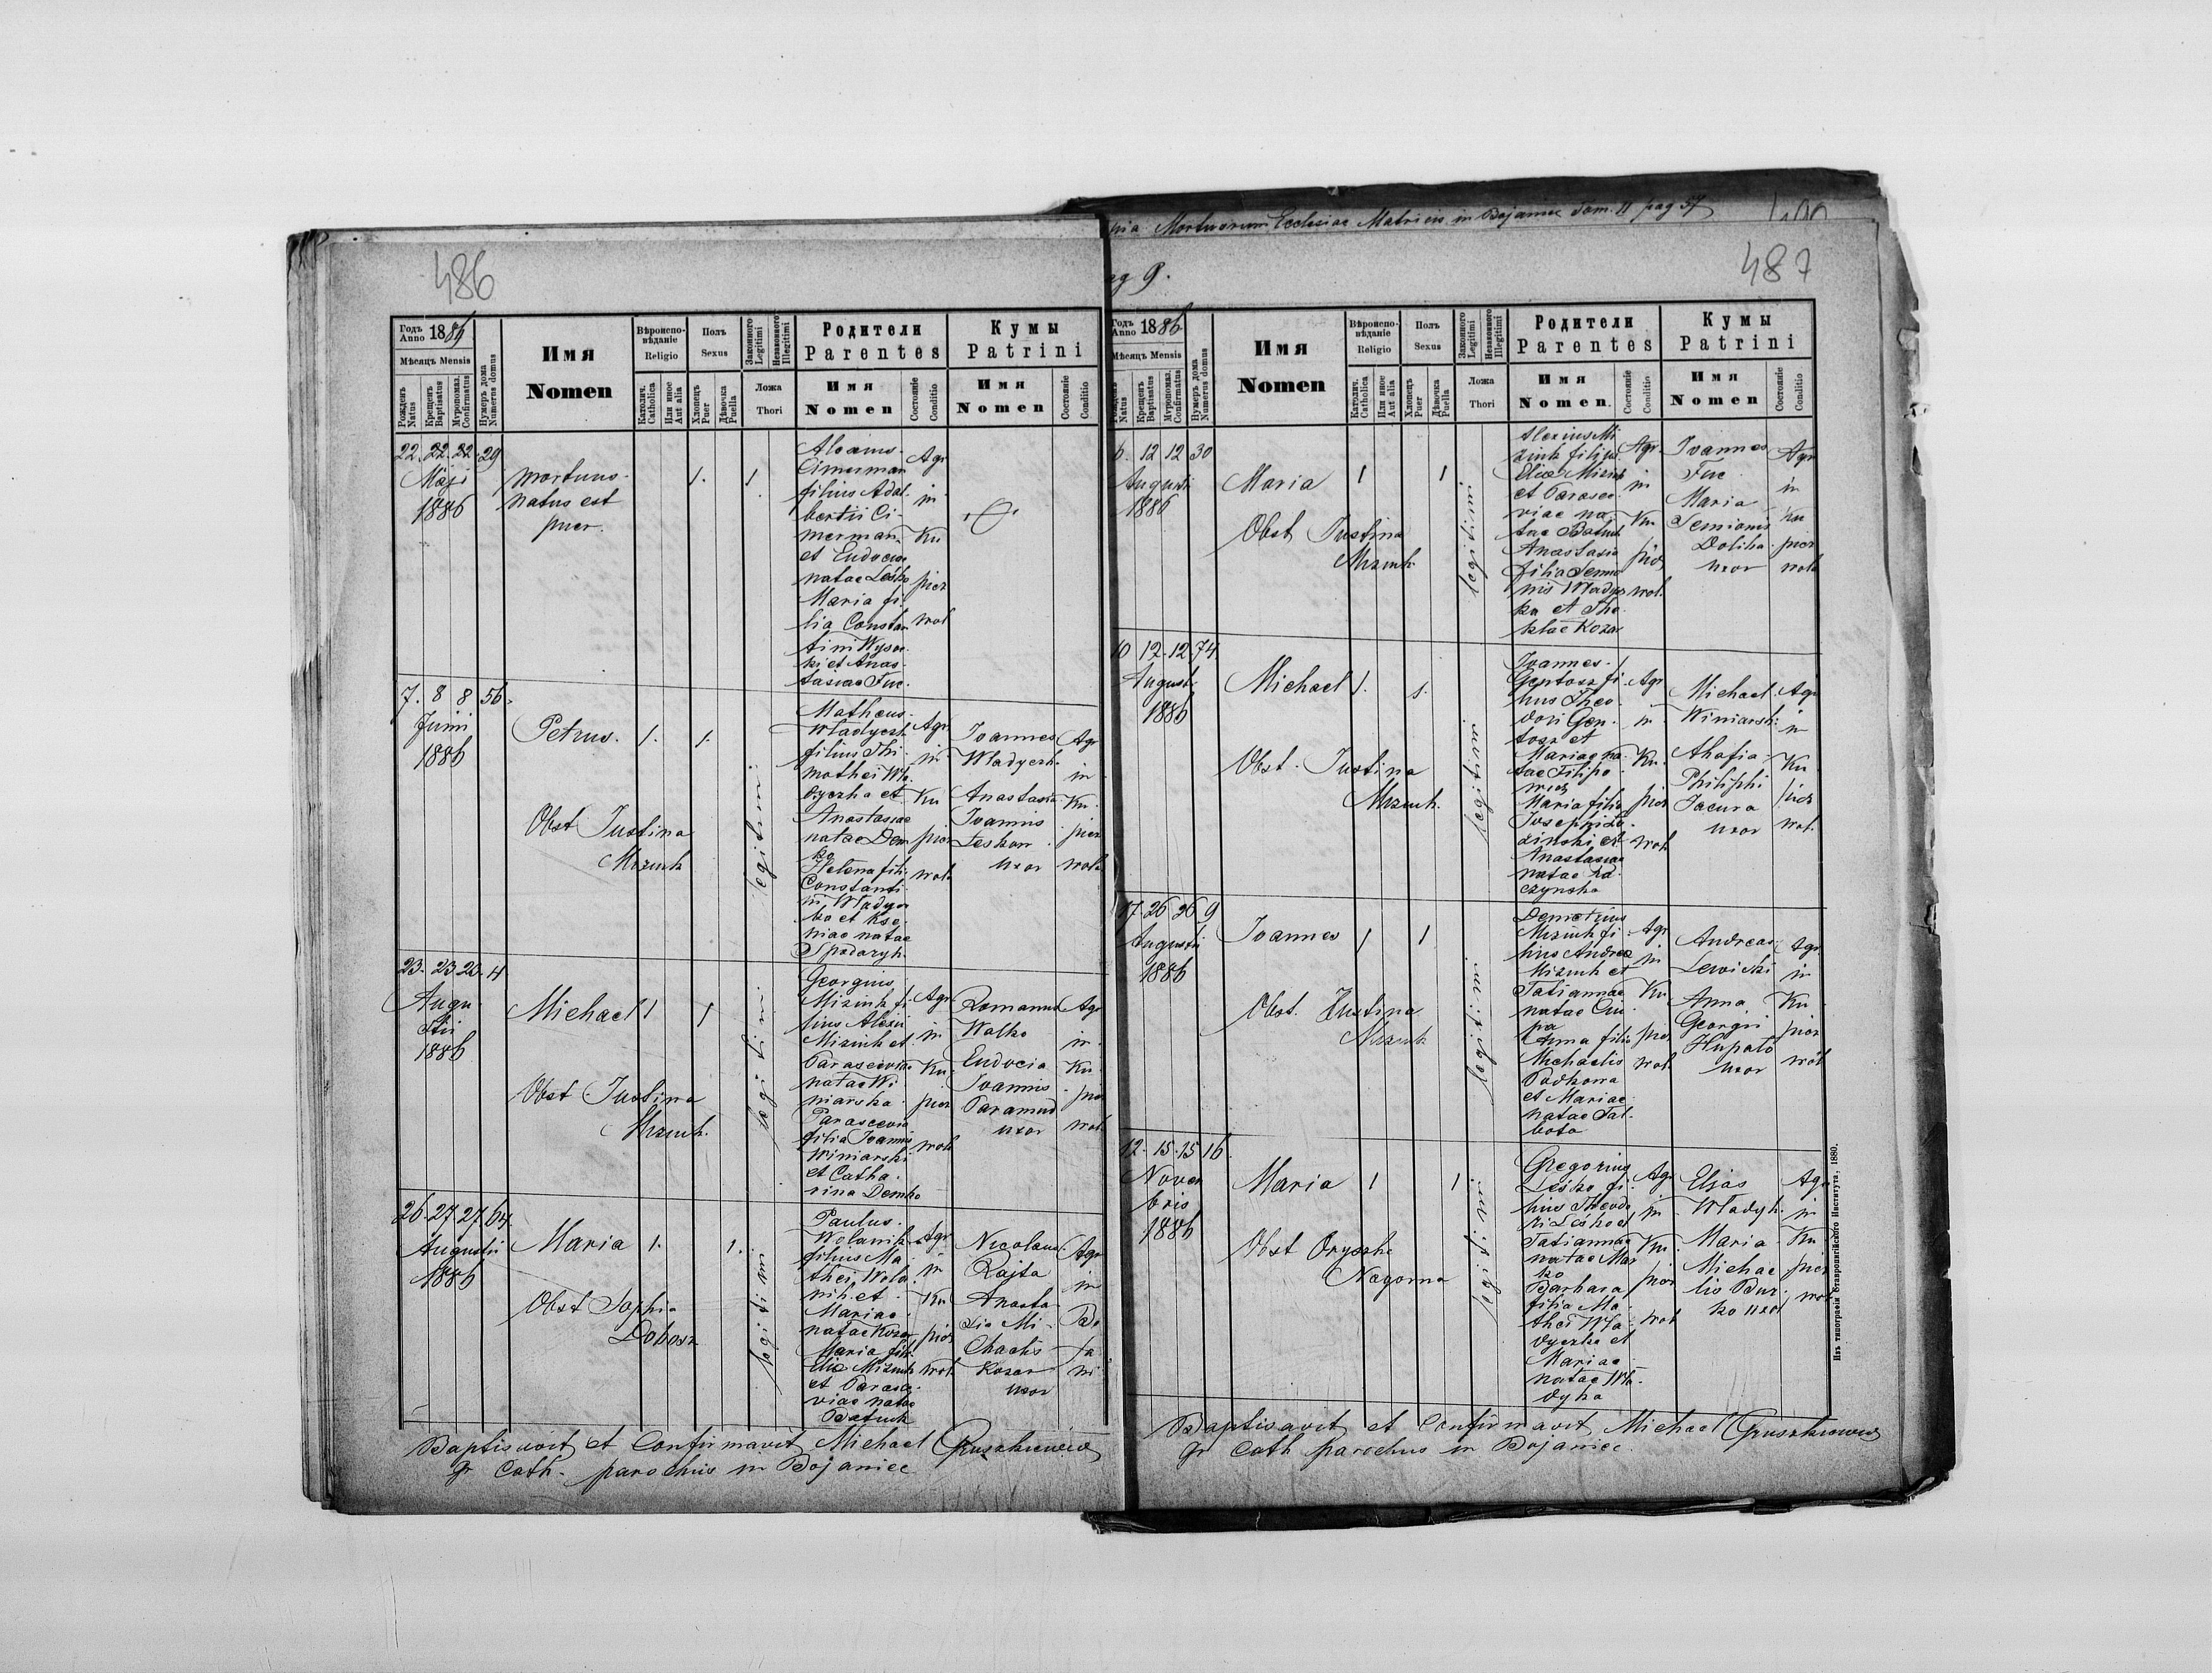 486
Годъ Anno 1886
Мѣсяцъ Mensis
Рожденъ Natus
Крещенъ Baptisatus
Муропомаз. Confirmatus
Нумеръ дома Numerus domus
Имя
Nomen
Вѣроиспо-
вѣданіе
Religio
Католич. Catholica
Или иное Aut alia
Полъ
Sexus
Хлопецъ Puer
Дѣвочка Puella
Законного Legitimi
Незаконного Illegitimi
Ложа
Thori
Родители
Parentes
Имя
Nomen
Состояніе Conditio
Кумы
Patrini
Имя
Nomen
Состояніе Conditio
22. 22. 22. 29
Maji
1886
mortuus
natus est
puer.
1. 1.
Cimerman
filius Adal-
bertii Ci-
merman
et Eudociae
natae Leśko
Maria fi-
lia Constan
tini Wysoc
ki et Anas-
tasiae Fuc.
Agr
in
Ku
picz
wol
7. 8 8 56.
Junii
1886
Petrus. 1. 1.
Obst Justina
Mizuk
legitimi
Matheus
Władyczk
filius Thi-
mothei Wła
dyczka et
Anastasiae
natae Dem
ko
Helena fili
Constanti-
ni Wladyc
ka et Kse-
niae natae
Spodaryk.
Agr
in
Ku
picz
wola
Joannes
Władyczk.
Anastasia
Joannis
Leskow
uxor
Agr
in
Ku.
picz
wola
23. 23 23. 4
Augu-
stii
1886
Michael 1 1
Obst Justina
Mizuk.
legitimi
Georgius
Mizuk fi-
lius Alexii
Mizuk et
Parasceviae
natae Wi-
niarska
Parascevia
filia Joannis
Winiarski
et Catha-
rina Demko
Agr
in
Ku
picz
wol
Romanus
Walko
Eudocia
Joannis
uxor
Agr
in
Ku
picz
wol
26. 27 27. 64.
Augustii
1886
Maria 1. 1.
Obst Sophia
Dobosz
legitimi
Paulus
Wolanik
filius Ma-
thei Wola
nik et
Mariae
natae Kozar
Maria fili
Eliae Mizuk
et Parasce-
viae natae
Batiuk
Agr
in
Ku
picz
wol.
Nicolaus
Rajta
Anasta-
sia Mi-
chaelis
Kozar
uxor
Agr
in
Baptisavit et Confirmavit Michael Gruszkiewicz
gr Cath. parochus in Bojaniec
pia Mortuorum Ecclesiae Matricis in Bojaniec Tom. II pag 57
ag 9.
487
Годъ Anno 1886
Мѣсяцъ Mensis
Рожденъ Natus
Крещенъ Baptisatus
Муропомаз. Confirmatus
Нумеръ дома Numerus domus
Имя
Nomen
Вѣроиспо-
вѣданіе
Religio
Католич. Catholica
Или иное Aut alia
Полъ
Sexus
Хлопецъ Puer
Дѣвочка Puella
Законного Legitimi
Незаконного Illegitimi
Ложа
Thori
Родители
Parentes
Имя
Nomen.
Состояніе Conditio
Кумы
Patrini
Имя
Nomen
Состояніе Conditio
6. 12 12 30
Augusti
1886
Maria 1 1
Obst Justina
Mizuk
legitimi
Alexius Mi
zuk filius
Eliae Mizuk
et Parasce-
viae na-
tae Batiuk
Anastasia
filia Semio
nis Wladyc
ka et The-
klae Kozar
Agr.
in
Ku
picz
wol.
Joannes
Fuc
Maria
Semionis
Doliba
uxor
Agr
in
Ku
picz
wola
10 12. 12. 74.
Augusti
1886
Michael 1. 1.
Obst. Justina
Mizuk.
legitimi
Joannes
Gentosz fi-
lius Theo-
dori Gen-
tosz et
Mariae na-
tae Filipo
wicz
Maria filia
Josephi Ło-
zinski et
Anastasiae
natae Ra-
czynska
Agr
in
Ku.
picz
wola
Michael
Winiarski
Ahafia
Philiphi
Jacura
uxor
Agr
in
Ku
picz
wol.
17. 26 26 9
Augustii
1886
Joannes 1 1
Obst. Justina
Mizuk
legitimi
Demetrius
Mizuk fi-
lius Andreae
Mizuk et
Tatiannae
natae Ciu-
pa
Anna filia
Michaelis
Podkowa
et Mariae
natae Tal-
bota
Agr
in
Ku
picz
wol.
Andreas
Lewicki
Anna
Georgii
Hupało
uxor
Agr.
in
Ku
picz
wol
12. 15. 15 16.
Novem
bris
1886
Maria 1 1
Obst Oryszka
Nagorna
legitimi
Gregorius
Leśko fi-
lius Theodo
ri Leśko et
Tatiannae
natae Mar
ko
Barbara
filia Ma-
thei Wła-
dyczka et
Mariae
natae Wła-
dyka
Agr
in
Ku.
picz
wol
Elias
Władyk.
Maria
Michae
lis Bur-
ko uxor
Agr
in
Ku
picz
wol
Baptisavit et Confirmavit Michael Gruszkiewicz
gr Cath parochus in Bojaniec.
Изъ типографіи Ставропигійского Института, 1880.